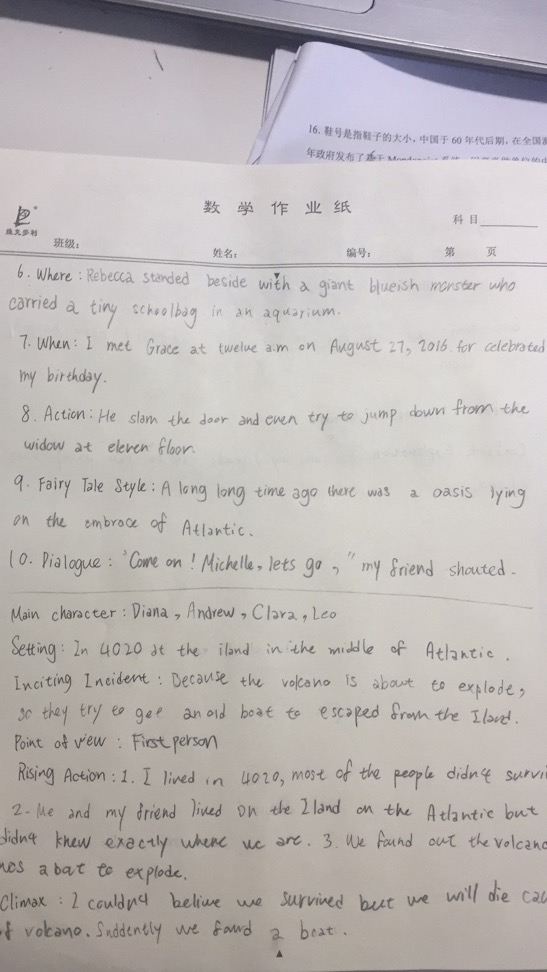 16. 鞋号是指鞋子的大小，中国于 60 年代后期，在全国
年政府发布了基于
数 学 作 业 纸
科目
班级：
姓名：
编号：
第 页
6. Where : Rebecca standed beside with a giant blueish monster who
carried a tiny schoolbag in an aquarium.
7. When : I met Grace at twelve a.m on August 27, 2016. for celebrated
my birthday.
8. Action : He slam the door and even try to jump down from the
widow at eleven floor.
9. Fairy Tale Style : A long long time ago there was a oasis lying
on the embrace of Atlantic.
10. Dialogue : "Come on ! Michelle, lets go ," my friend shouted.
Main character : Diana, Andrew, Clara, Leo
Setting : In 4020 at the iland in the middle of Atlantic.
Inciting Incident : Because the volcano is about to explode,
so they try to get an old boat to escaped from the Iland.
Point of view : First person
Rising Action : 1. I lived in 4020, most of the people didn't survi
2. Me and my friend lived on the Iland on the Atlantic but
didn't knew exactly where we are. 3. We found out the volcano
was abat to explode.
Climax : I couldn't belive we survived but we will die cau
of volcano. Suddently we found a boat.